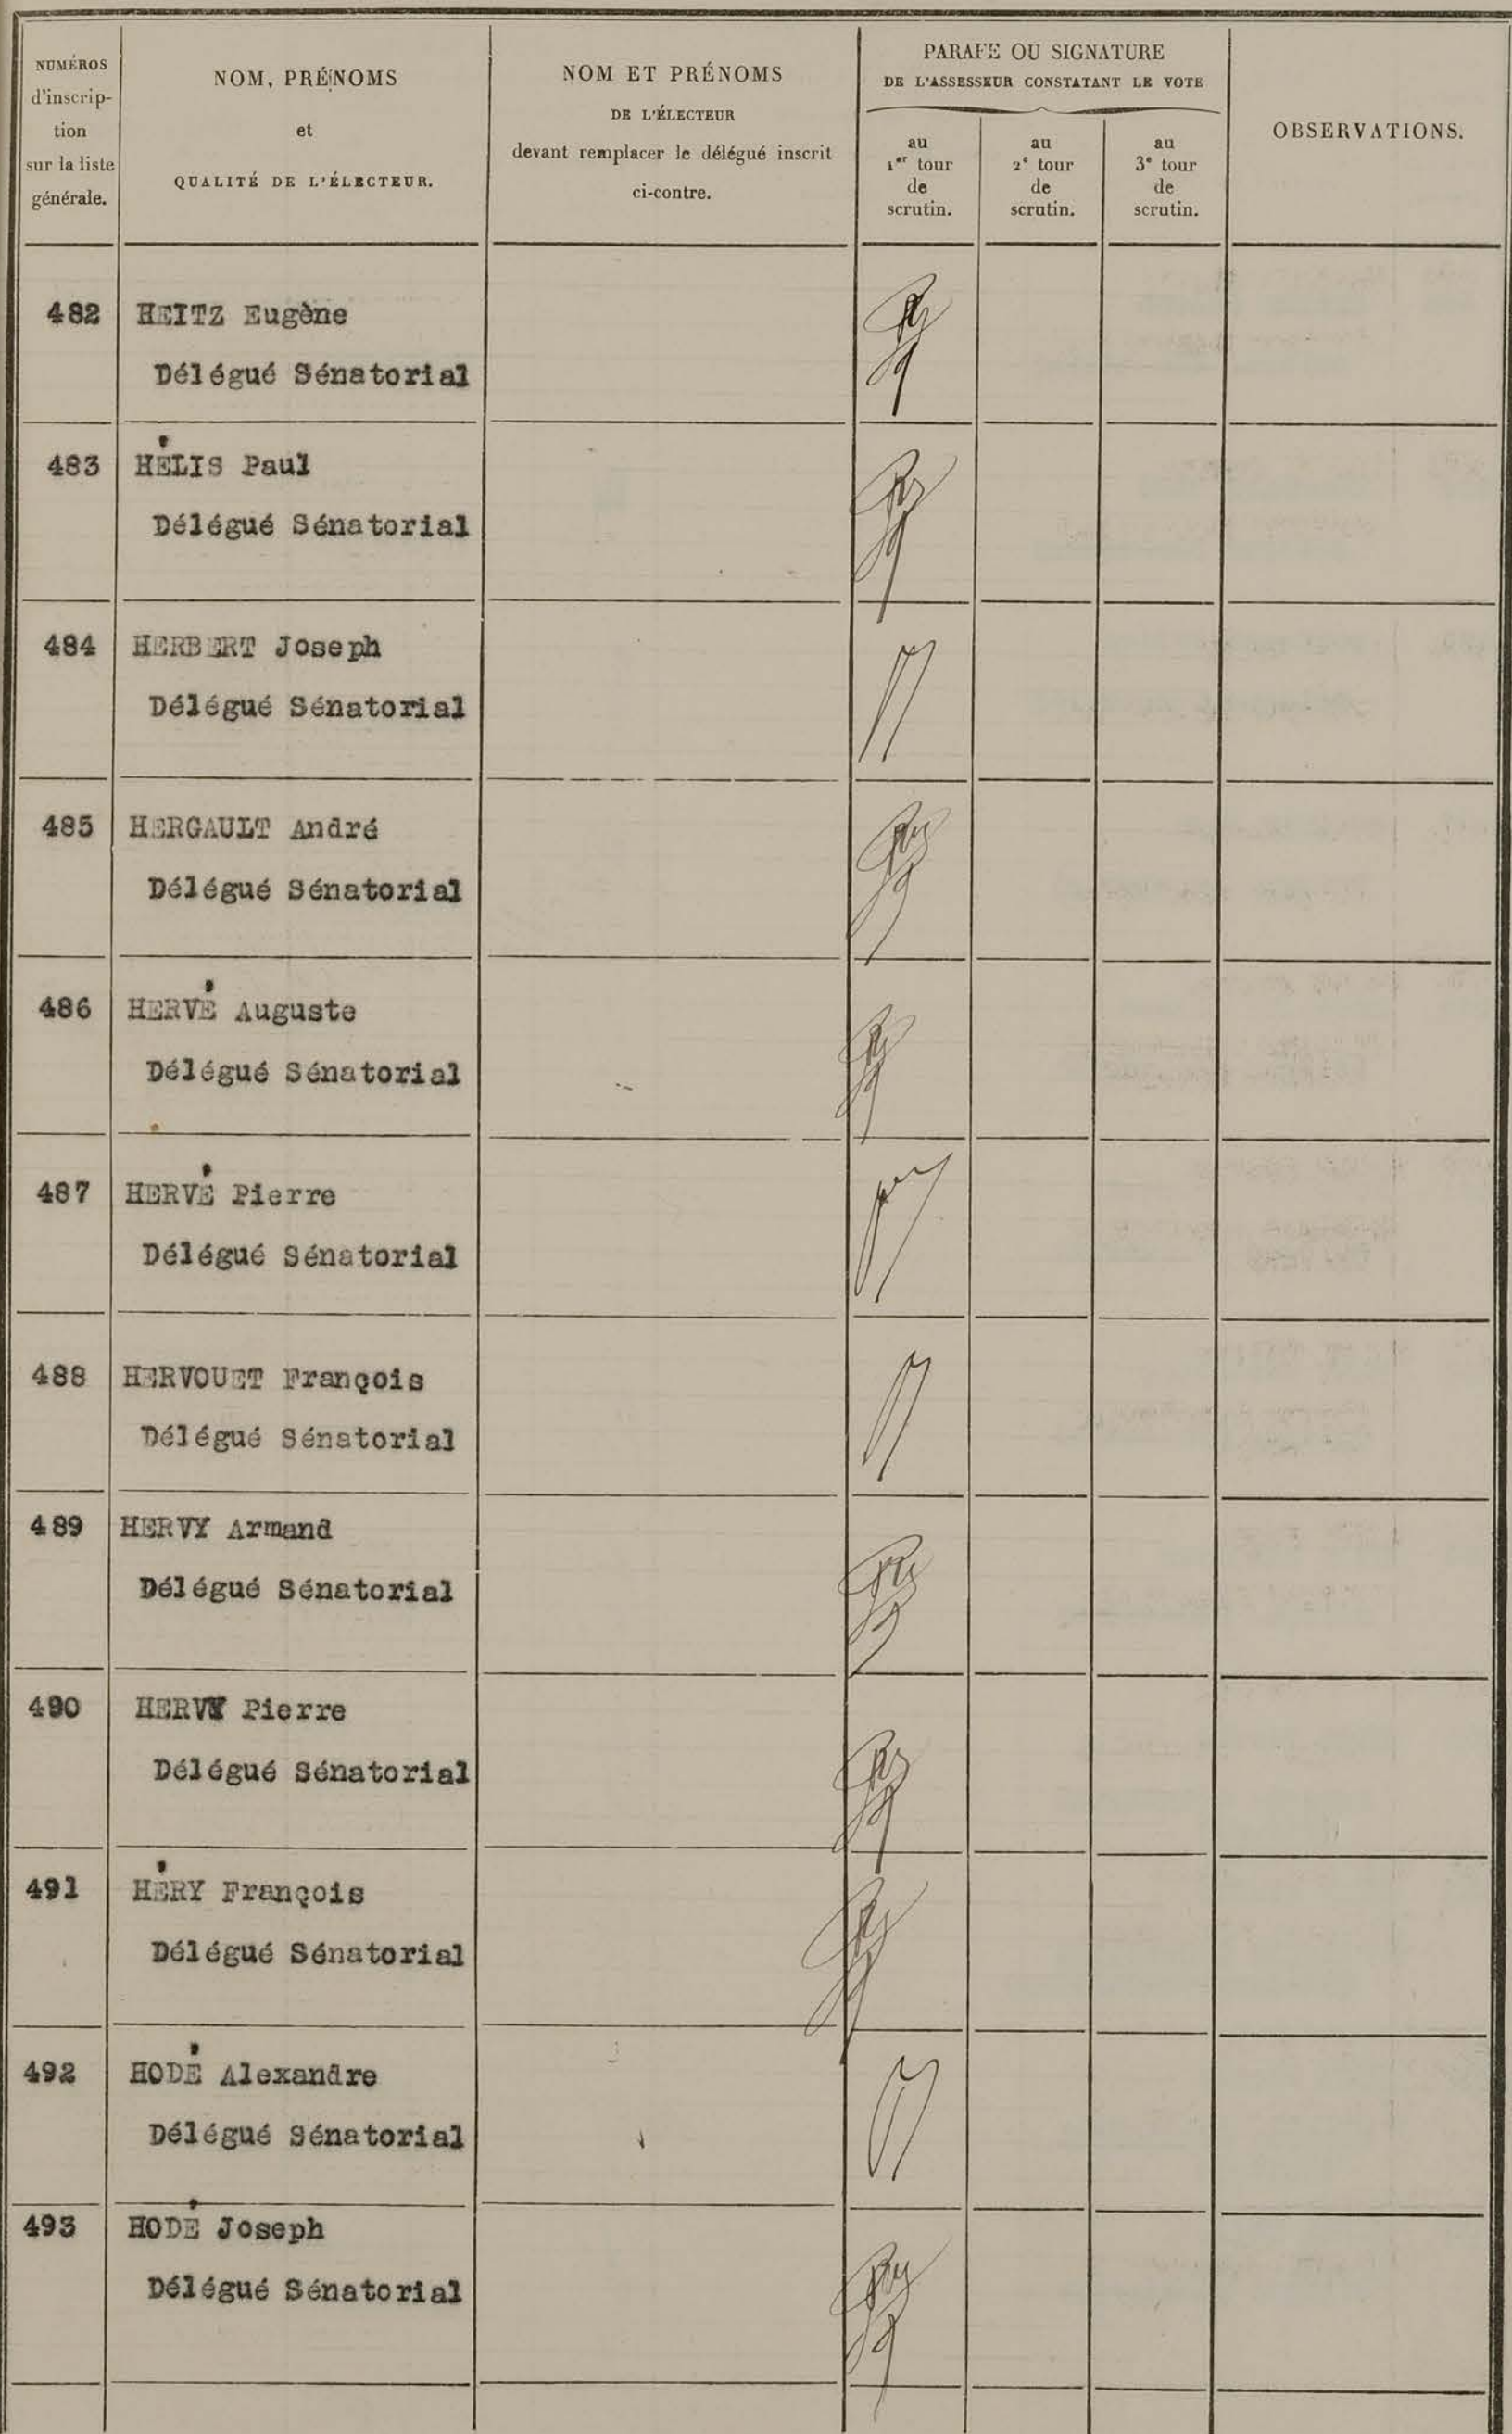 NUMÉROS
d'inscrip-
tion
sur la liste
générale.
NOM, PRÉNOMS
et
QUALITÉ DE L'ÉLECTEUR.
NOM ET PRÉNOMS
DE L'ÉLECTEUR
devant remplacer le délégué inscrit
ci-contre.
PARAFE OU SIGNATURE
DE L'ASSESSEUR CONSTATANT LE VOTE
au
1er tour
de
scrutin.
au
2e tour
de
scrutin.
au
3e tour
de
scrutin.
OBSERVATIONS.
482 HEITZ Eugène
Délégué Sénatorial
483 HÉLIS Paul
Délégué Sénatorial
484 HERBERT Joseph
Délégué Sénatorial
485 HERGAULT André
Délégué Sénatorial
486 HERVÉ Auguste
Délégué Sénatorial
487 HERVÉ Pierre
Délégué Sénatorial
488 HERVOUET François
Délégué Sénatorial
489 HERVY Armand
Délégué Sénatorial
490 HERVY Pierre
Délégué Sénatorial
491 HÉRY François
Délégué Sénatorial
492 HODÉ Alexandre
Délégué Sénatorial
493 HODÉ Joseph
Délégué Sénatorial